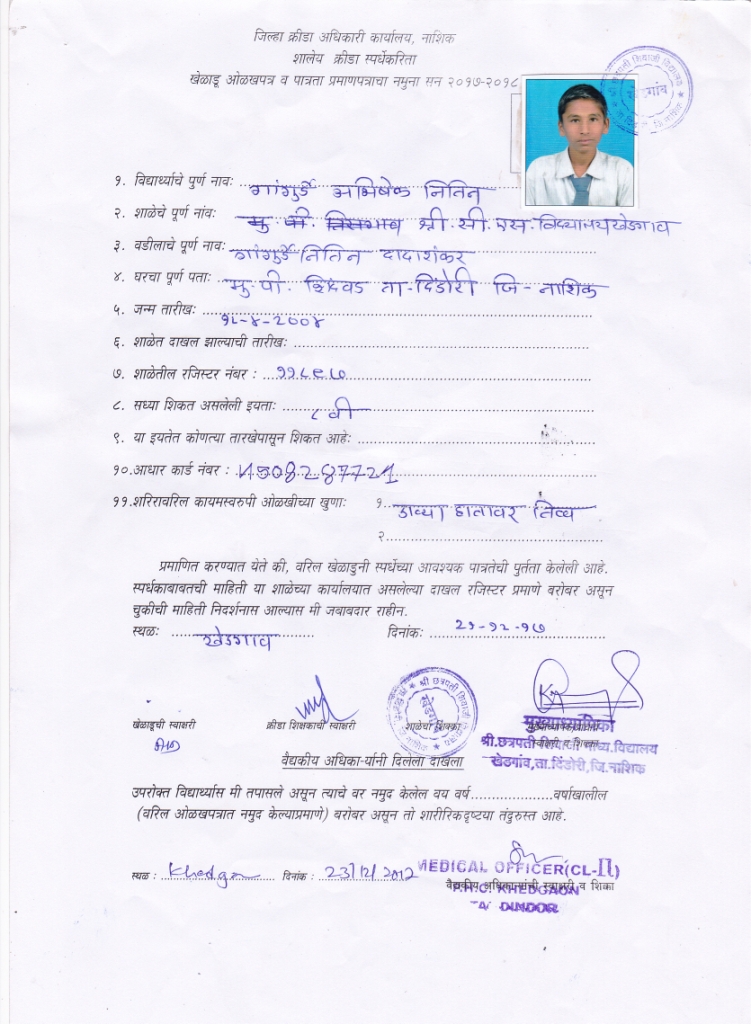 जिल्हा क्रीडा अधिकारी कार्यालय, नाशिक
शालेय क्रीडा स्पर्धेकरिता
खेळाडू ओळखपत्र व पात्रता प्रमाणपत्राचा नमुना सन २०१७-२०१८
१. विद्यार्थ्याचे पुर्ण नावः गांगुर्डे अभिषेक नितिन
२. शाळेचे पूर्ण नांवः श्री.सी.एस. विद्यालय खेडगाव
३. वडीलाचे पूर्ण नावः गांगुर्डे नितिन दादाशंकर
४. घरचा पूर्ण पताः मु.पी. शिंदवड ता-दिंडोरी जि- नाशिक
५. जन्म तारीखः १८-४-2००४
६. शाळेत दाखल झाल्याची तारीखः
७. शाळेतील रजिस्टर नंबर : ११८९७
८. सध्या शिकत असलेली इयताः ८ वी
९. या इयतेत कोणत्या तारखेपासून शिकत आहेः
१०.आधार कार्ड नंबर :
११.शरिरावरिल कायमस्वरुपी ओळखीच्या खुणाः १. डाव्या हातावर तिव्य
२.
प्रमाणित करण्यात येते की, वरिल खेळाडुनी स्पर्धेच्या आवश्यक पात्रतेची पुर्तता केलेली आहे.
स्पर्धकाबाबतची माहिती या शाळेच्या कार्यालयात असलेल्या दाखल रजिस्टर प्रमाणे बरोबर असून
चुकीची माहिती निदर्शनास आल्यास मी जबाबदार राहीन.
स्थळः खेडगाव दिनांकः २१-१२-१७
खेळाडूची स्वाक्षरी क्रीडा शिक्षकाची स्वाक्षरी शाळेचा शिक्का
मुख्याध्यापिका
श्री.छत्रपती शिवाजी माध्य.विद्यालय
खेडगांव,ता.दिंडोरी,जि.नाशिक
वैद्यकीय अधिका-यांनी दिलेला दाखला
उपरोक्त विद्यार्थ्यास मी तपासले असून त्याचे वर नमुद केलेल वय वर्ष....................वर्षाखालील
(वरिल ओळखपत्रात नमुद केल्याप्रमाणे) बरोबर असून तो शारीरिकदृष्टया तंदुरुस्त आहे.
स्थळ : Khedgaon दिनांक : 23/12/2017
MEDICAL OFFICER(CL-II)
वैद्यकीय अधिकाऱ्यांनी स्वाक्षरी व शिक्का
P.H.C. KHEDGAON
DINDORI